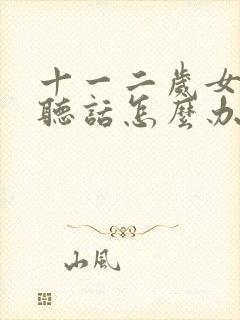 十一二歲女
聽話怎麼办
山風